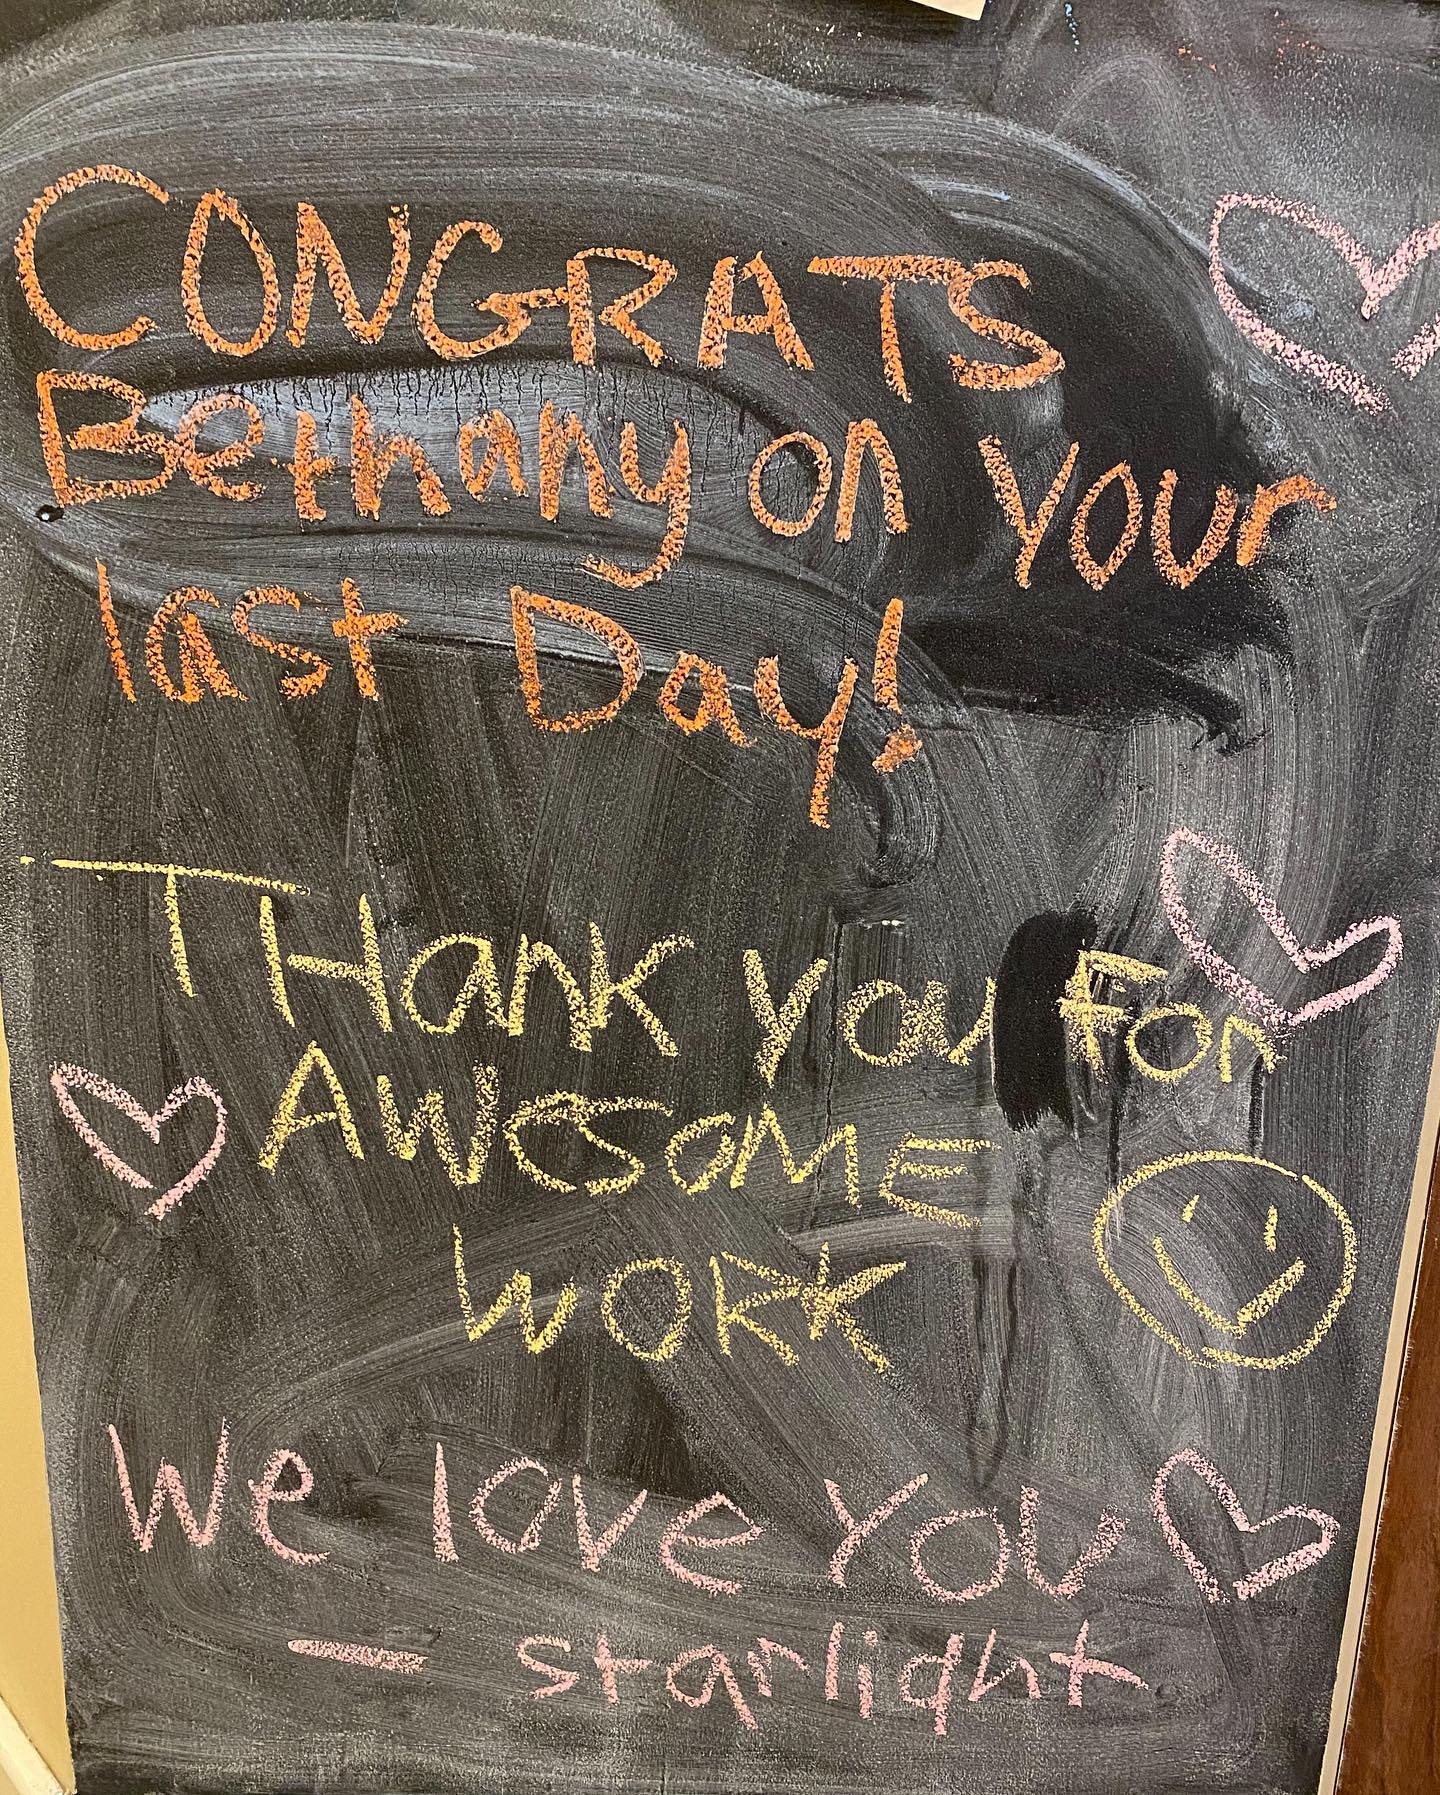 CONGRATS
Bethany on your
last Day!
THank you For
AWESOME
WORK
We love you
- starlight